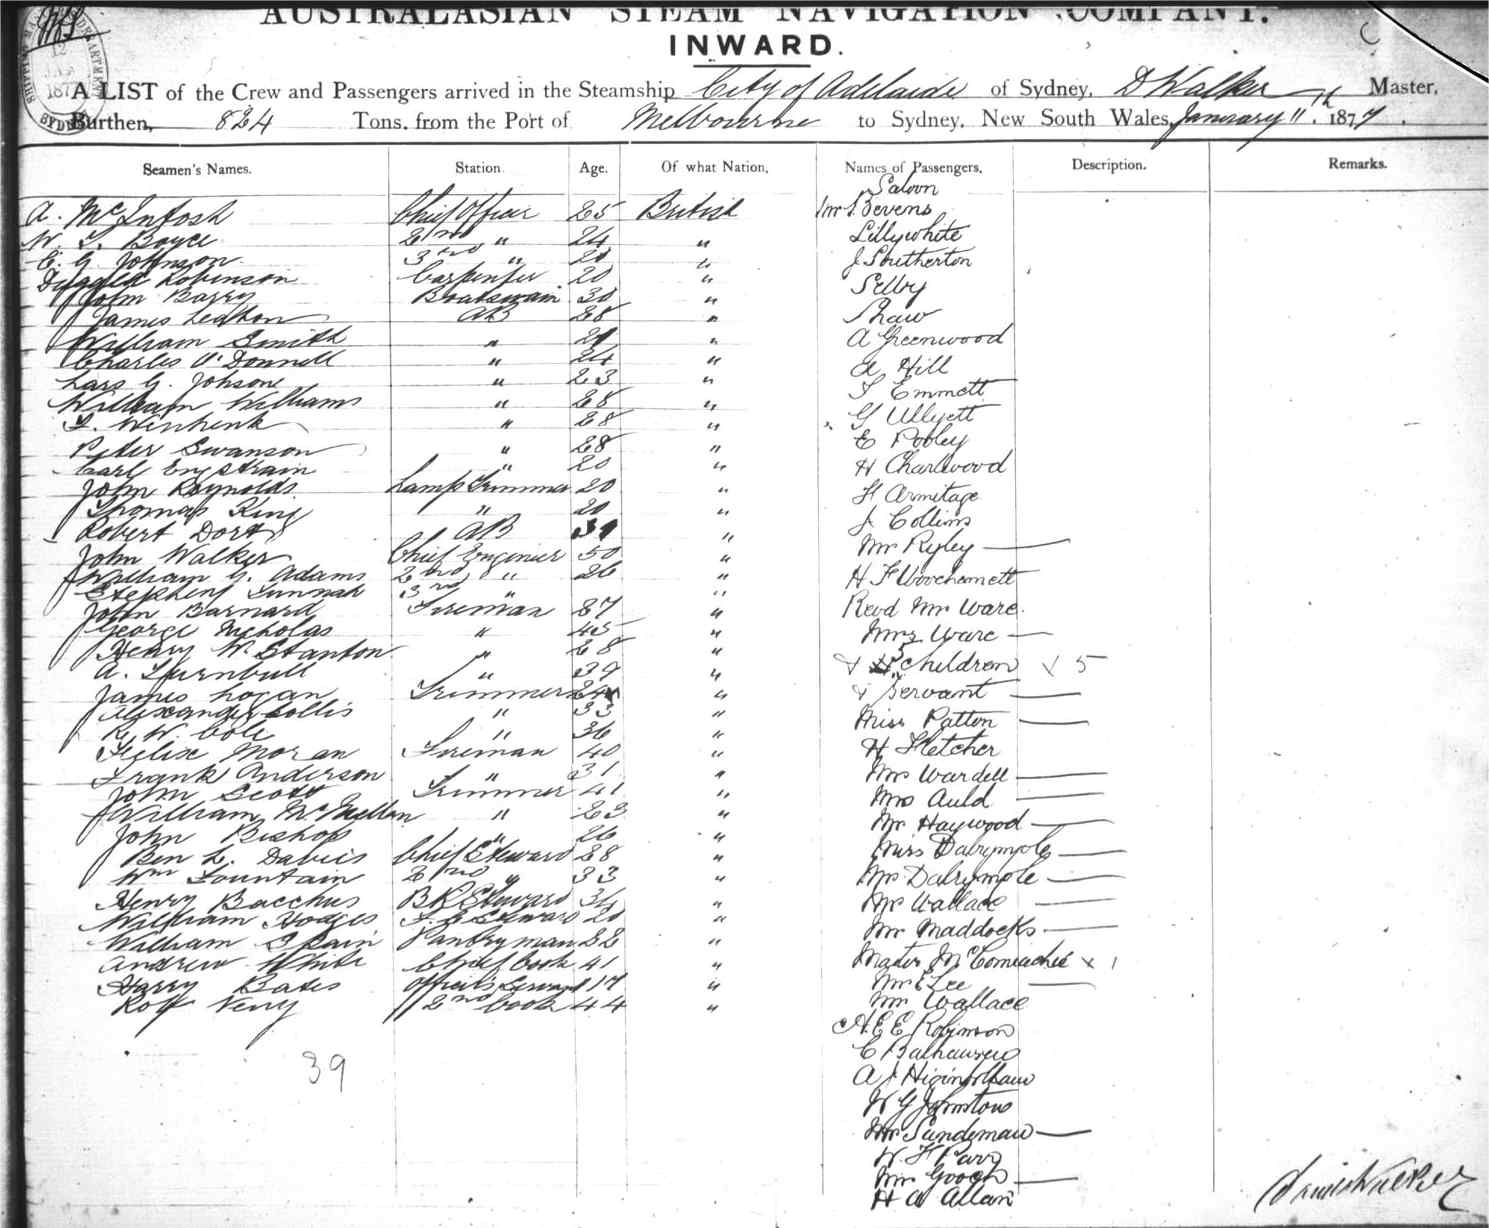 AUSTRALASIAN STEAM NAVIGATION COMPANY.
INWARD.
A LIST of the Crew and Passengers arrived in the Steamship City of Adelaide of Sydney, D Walker Master,
Burthen, 824 Tons, from the Port of Melbourne to Sydney, New South Wales, January 11th 1877.
Seamen's Names. Station. Age. Of what Nation. Names of Passengers. Description. Remarks.
Saloon
A. McIntosh Chief Officer 25 British Mr J. Bevens
W. T. Boyce 2nd " 24 " Lillywhite
C. G. Johnson 3rd " 20 " J Southerton
Dugald Robinson Carpenter 20 " Selby
John Barry Boatswain 30 " Shaw
James Leathon AB 28 " A Greenwood
William Smith " 21 " A Hill
Charles O'Donnell " 24 " T Emmett
Lars G. Johson " 23 " G Ullyett
William Williams " 28 " E Pooley
" 28 " H Charlwood
Peter Swanson " 28 " H Armitage
Carl Engstrain " 20 " J Collins
John Reynolds Lamp Trimmer 20 " Mr Ryley
Thomas King " 20 "
Robert Dort AB 39 " Revd Mr Ware.
John Walker Chief Engineer 50 " Mrs Ware
William G. Adams 2nd " 26 " & 5 Children x 5
Stephen 3rd " " & Servant
John Barnard Fireman 27 " Miss Patton
George Nicholas " 45 " H Fletcher
Henry W. Stanton " 28 " Mrs Wardell
A. Turnbull " 39 " Mrs Auld
James Logan Trimmer 24 " Mr Haywood
Alexander Collis " 33 " Miss Dalrymple
R. W. Cole " 36 " Mrs Dalrymple
Felix Moran Fireman 40 " Mr Wallace
Frank Anderson " 31 " Mr Maddocks
John Scott Trimmer 41 " Master x 1
William McMellan " 23 " Mr E Lee
John Bishop " 26 " Mr Wallace
Ben L. Davies Chief Steward 28 " A. E E Robinson
Wm Fountain 2nd " 33 "
Henry Bacchus B R Steward 34 "
William Hodges Steward 20 " W G Johnston
William Spain Pantryman 22 " Mr Sandeman
Andrew White Chief Cook 41 " W F Parr
Harry Bates Officer's Servant 17 " Mr Gooch
Rolf Very 2nd Cook 44 " H A Allan
39